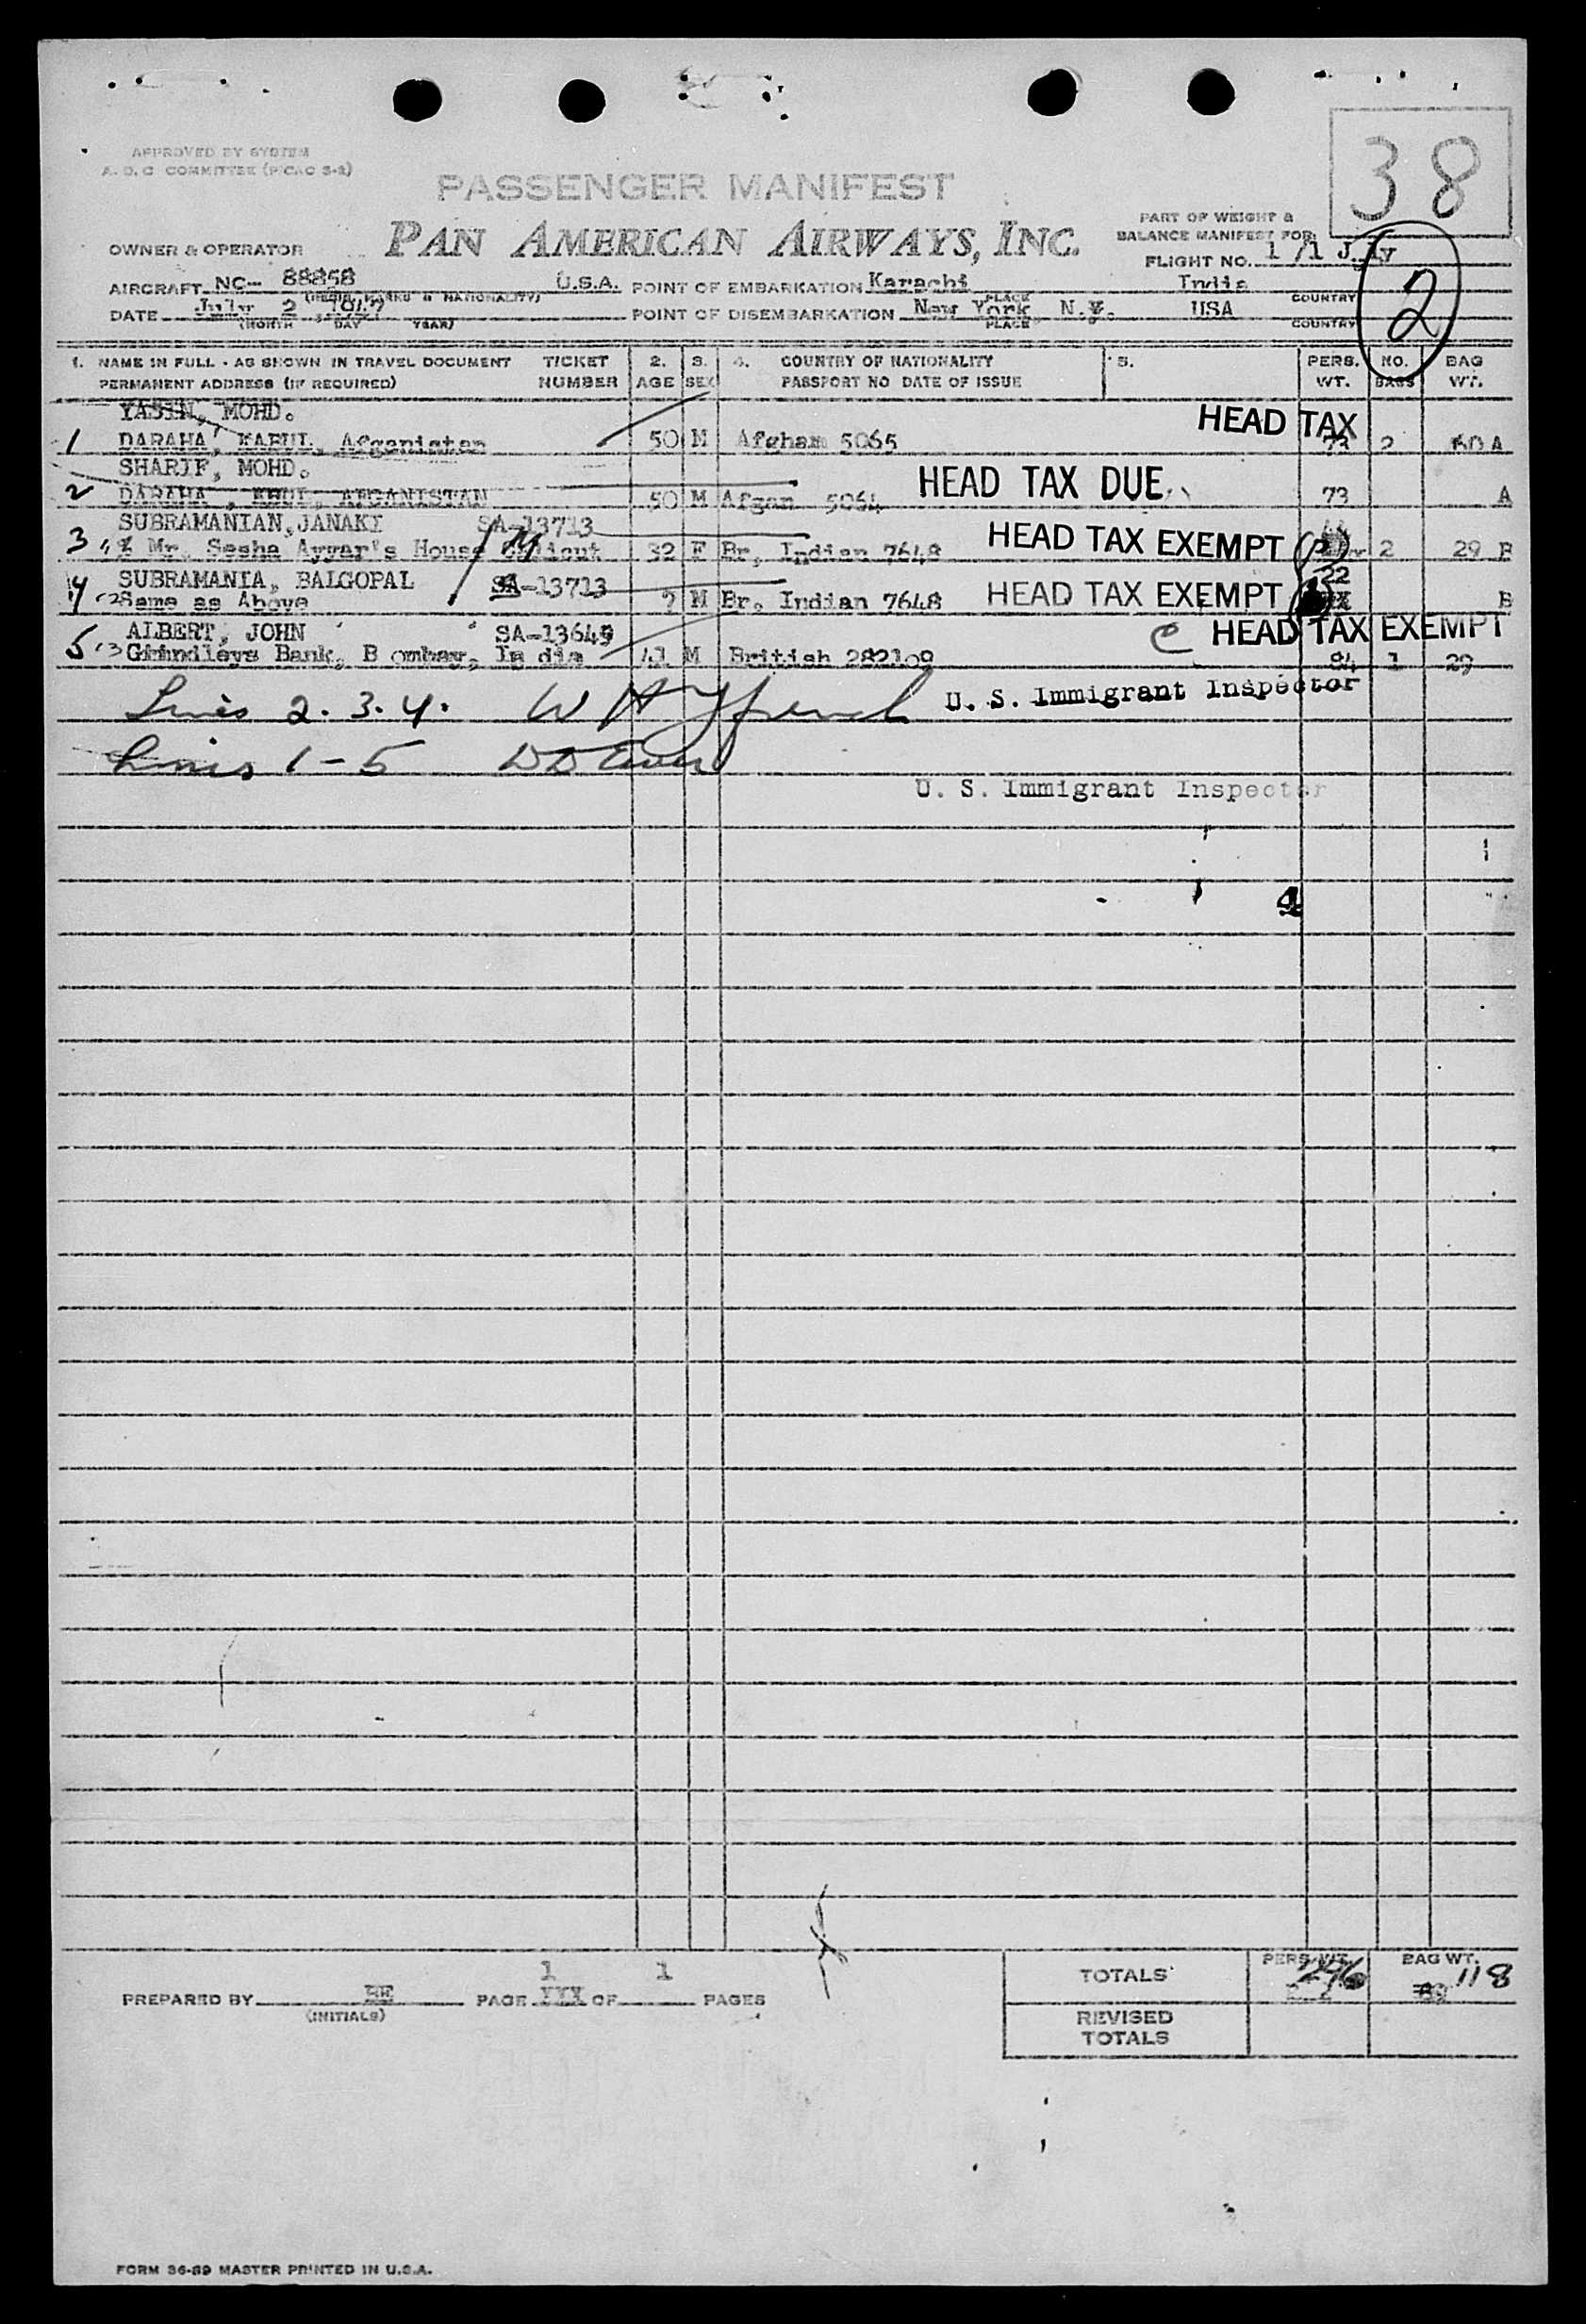 38
APPROVED BY SYSTEM
A. D. C COMMITTEE (PICAC S-2)
PASSENGER MANIFEST
PART OF WEIGHT &
BALANCE MANIFEST FOR:
OWNER & OPERATOR PAN AMERICAN AIRWAYS, INC.
FLIGHT NO. 1 /1 July
2
AIRCRAFT NC- 88858 U.S.A. POINT OF EMBARKATION Karachi India
(REGIS. MARKS & NATIONALITY) PLACE COUNTRY
DATE July 2 1947 POINT OF DISEMBARKATION New York N.Y. USA
(MONTH DAY YEAR) PLACE COUNTRY
1. NAME IN FULL - AS SHOWN IN TRAVEL DOCUMENT TICKET 2. 3. 4. COUNTRY OF NATIONALITY 5. PERS. NO. BAG
PERMANENT ADDRESS (IF REQUIRED) NUMBER AGE SEX PASSPORT NO DATE OF ISSUE WT. BAGS WT.
YASIN, MOHD. HEAD TAX
1 DARAHA, KABUL, Afganistan 50 M Afghan 5065 73 2 60 A
SHARIF, MOHD. HEAD TAX DUE
2 DARAHA, AFGANISTAN 50 M Afgan 5064 73 A
SUBRAMANIAN, JANAKI SA-13713 HEAD TAX EXEMPT
3 % Mr. Sesha Ayyar's House Calicut 32 F Br. Indian 7648 2 29 B
SUBRAMANIA, BALGOPAL SA-13713 HEAD TAX EXEMPT 22
4 Same as Above M Br. Indian 7648 B
ALBERT, JOHN SA-13649 HEAD TAX EXEMPT
5 Grindleys Bank, B ombay, In dia 41 M British 282109 84 1 29
Lines 2. 3. 4. U. S. Immigrant Inspector
Lines 1-5
U. S. Immigrant Inspector
1 1
PREPARED BY PAGE XXX OF PAGES
(INITIALS)
TOTALS PERS. WT. 296 BAG WT. 118
REVISED
TOTALS
FORM 36-89 MASTER PRINTED IN U.S.A.